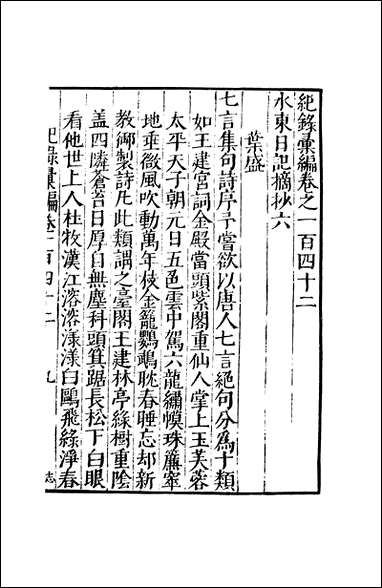 紀錄彙編卷之一百四十二
水東日記摘抄六
葉盛
七言集句詩序予嘗欲以唐人七言絕句分為十類
如王建宮詞金殿當頭紫閣重仙人掌上玉芙蓉
太平天子朝元日五色雲中駕六龍繡幙珠簾窣
地垂微風吹動萬年枝金籠鸚鵡眈春睡忘却新
教御製詩凡此類謂之臺閣王建林亭綠樹重陰
盖四隣蒼苔日厚自無塵科頭箕踞長松下白眼
看他世上人杜牧漢江溶溶漾漾白鷗飛綠淨春
紀錄彙編卷一百四十二 九
志